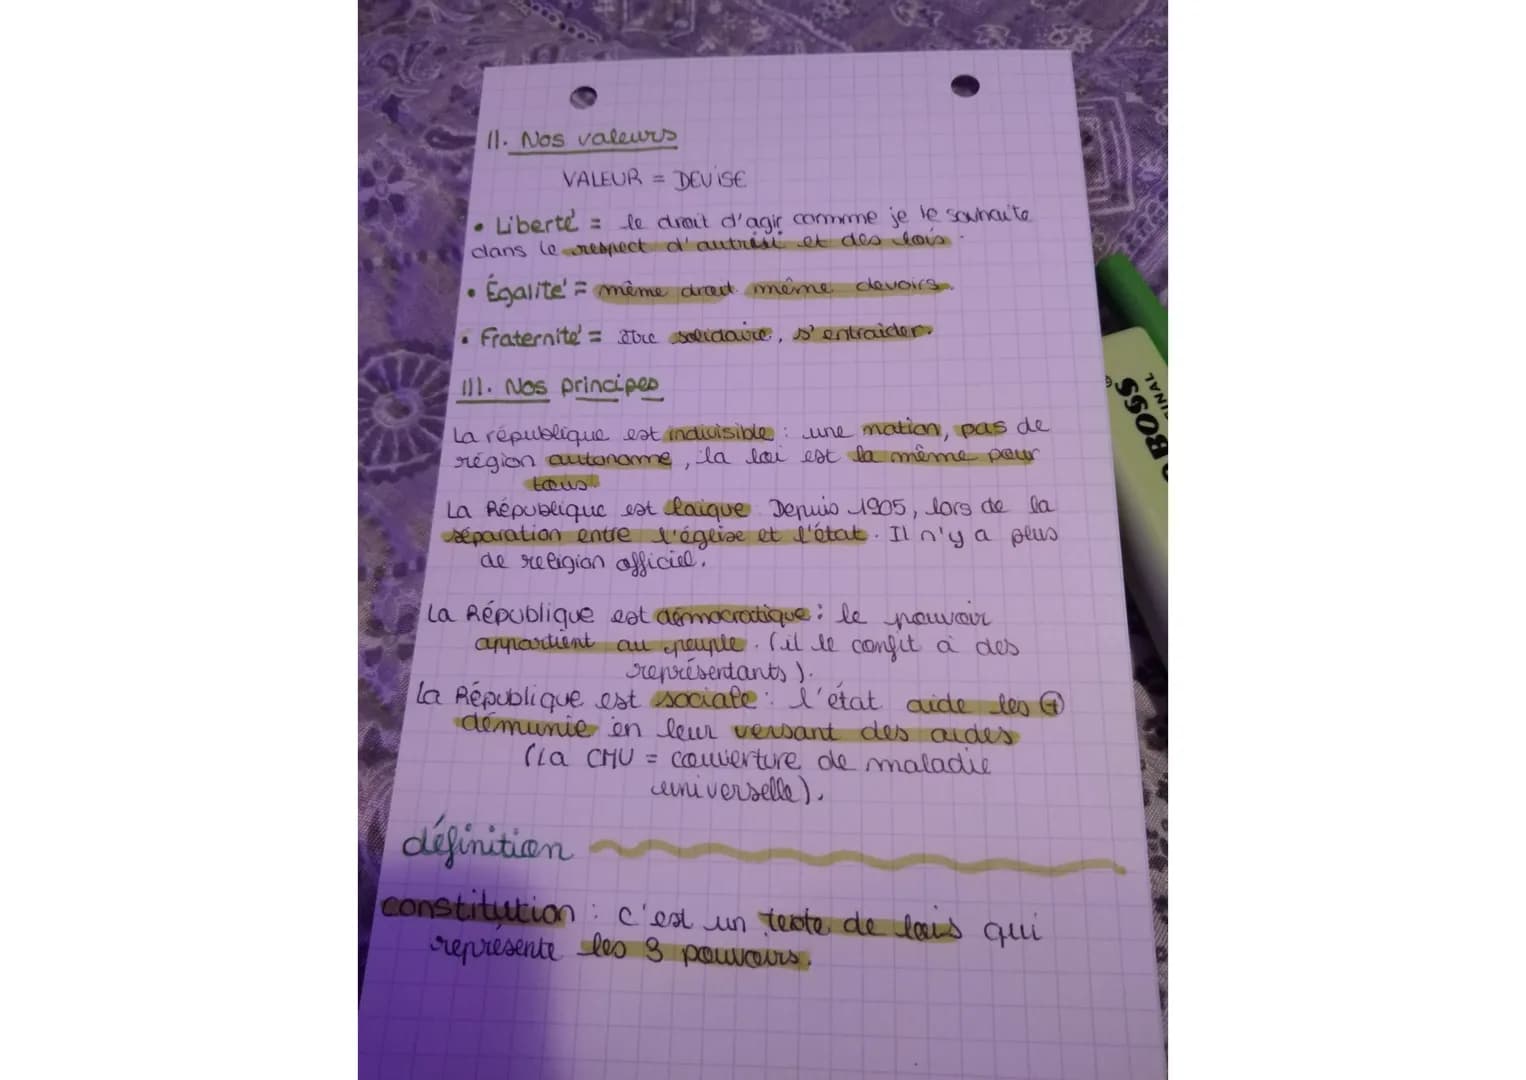 II. Nos valeurs
VALEUR = DEVISE
• Liberté = le droit d'agir comme je le souhaite
dans le respect d'autrui et des lois.
• Égalité = même droit même devoirs.
• Fraternité = être solidaire, s'entraider.
III. Nos principes
La république est indivisible : une nation, pas de
région autonome, la loi est la même pour
tous.
La République est laïque. Depuis 1905, lors de la
séparation entre l'église et l'état. Il n'y a plus
de religion officiel.
La République est démocratique : le pouvoir
appartient au peuple. (il le confit à des
représentants).
La République est sociale : l'état aide les +
démunie en leur versant des aides
(la CMU = couverture de maladie
universelle).
définition
constitution : c'est un texte de lois qui
représente les 3 pouvoirs.
BOSS
INAL